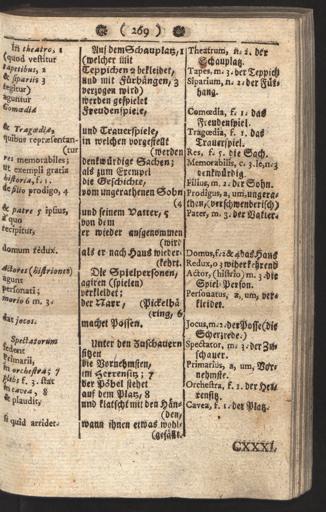 ( 269 )
In theatro, 1
(quod vestitur
tapetibus, 2
& sipariis 3
tegitur)
aguntur
Comœdiæ
& Tragœdiæ,
quibus repræsentan-
(tur
res memorabiles;
ut exempli gratia
historia, f. 1.
de filio prodigo, 4
& patre 5 ipsius,
a quo
recipitur,
domum redux.
Actores (histriones)
agunt
personati;
morio 6 m. 3.
dat jocos.
Spectatorum
sedent
Primarii,
in orchestra; 7
plebs f. 3. stat
in cavea, 8
& plaudit,
si quid arridet.
Auf dem Schauplatz, 1
(welcher mit
Teppichen 2 bekleidet,
und mit Fürhängen, 3
verzogen wird)
werden gespielet
Freudenspiele,
und Trauerspiele,
in welchen vorgestellt
(werden
denkwürdige Sachen;
als zum Exempel
die Geschichte,
vom ungerathenen Sohn
(4
und seinem Vatter, 5
von dem
er wieder aufgenommen
(wird
als er nach Haus wieder-
(kehrt.
Die Spielpersonen,
agiren (spielen)
verkleidet;
der Narr, (Pickelhä
(ring, 6
machet Possen.
Unter den Zuschauern
sitzen
die Vornehmsten,
im Herrensitz; 7
der Pöbel stehet
auf dem Platz, 8
und klatscht mit den Hän-
(den,
wann ihnen etwas wohl-
(gefällt.
Theatrum, n. 2. der
Schauplatz.
Tapes, m. 3. der Teppich
Siparium, n. 2. der Für-
hang.
Comœdia, f. 1. das
Freudenspiel.
Tragœdia, f. 1. das
Trauerspiel.
Res, f. 5. die Sach.
Memorabilis, c. 3. le, n. 3
denkwürdig.
Filius, m. 2. der Sohn.
Prodigus, a, um, ungera-
then, (verschwenderisch)
Pater, m. 3. der Vatter.
Domus, f. 2 & 4 das Haus
Redux, o 3 wiherkehrend
Actor, (histrio) m. 3. die
Spiel-Person.
Personatus, a, um, ver-
kleidet.
Jocus, m. 2. der Posse (die
Scherzrede.)
Spectator, m. 3. der Zu-
schauer.
Primarius, a, um, Vor-
nehmste.
Orchestra, f. 1. der Her-
rensitz.
Cavea, f. 1. der Platz.
CXXXI.